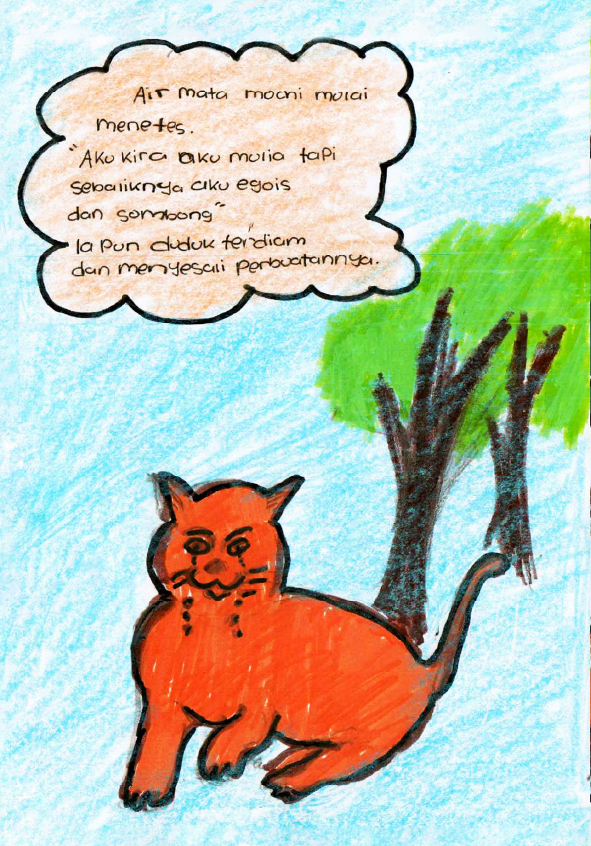 Air mata mouni mulai
menetes.
"Aku kira aku mulia tapi
sebaliknya aku egois
dan sombong"
Ia pun duduk terdiam
dan menyesali perbuatannya.